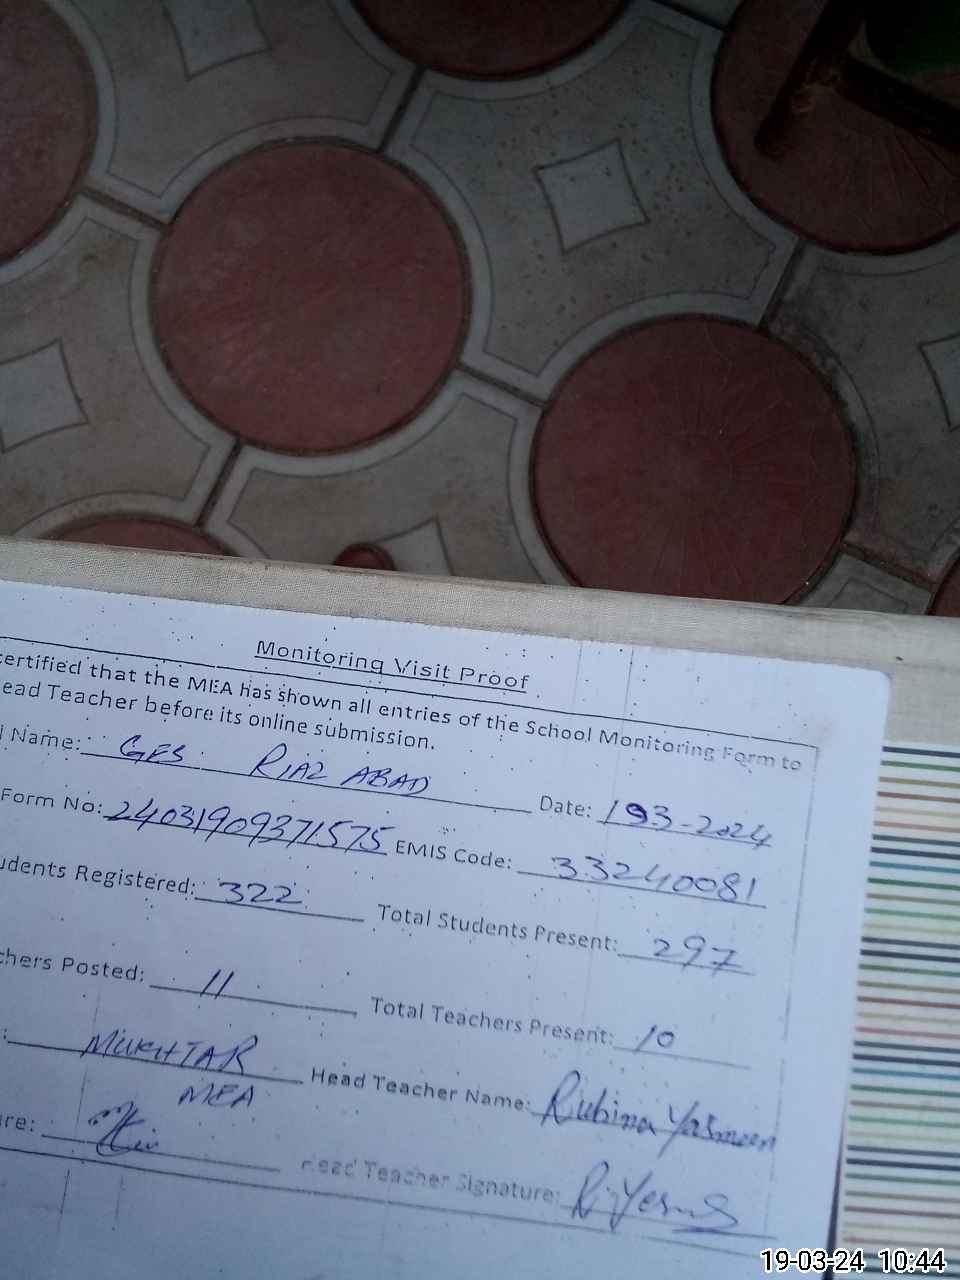 Monitoring Visit Proof
certified that the MEA has shown all entries of the School Monitoring Form to
ead Teacher before its online submission.
l Name: GES RIAZ ABAD Date: 193-2024
Form No: 24031909371575 EMIS Code: 33240081
udents Registered: 322 Total Students Present: 297
chers Posted: 11 Total Teachers Present: 10
: MUKHTAR Head Teacher Name: Rubina Yasmeen
MEA
re: Head Teacher Signature:
19-03-24 10:44